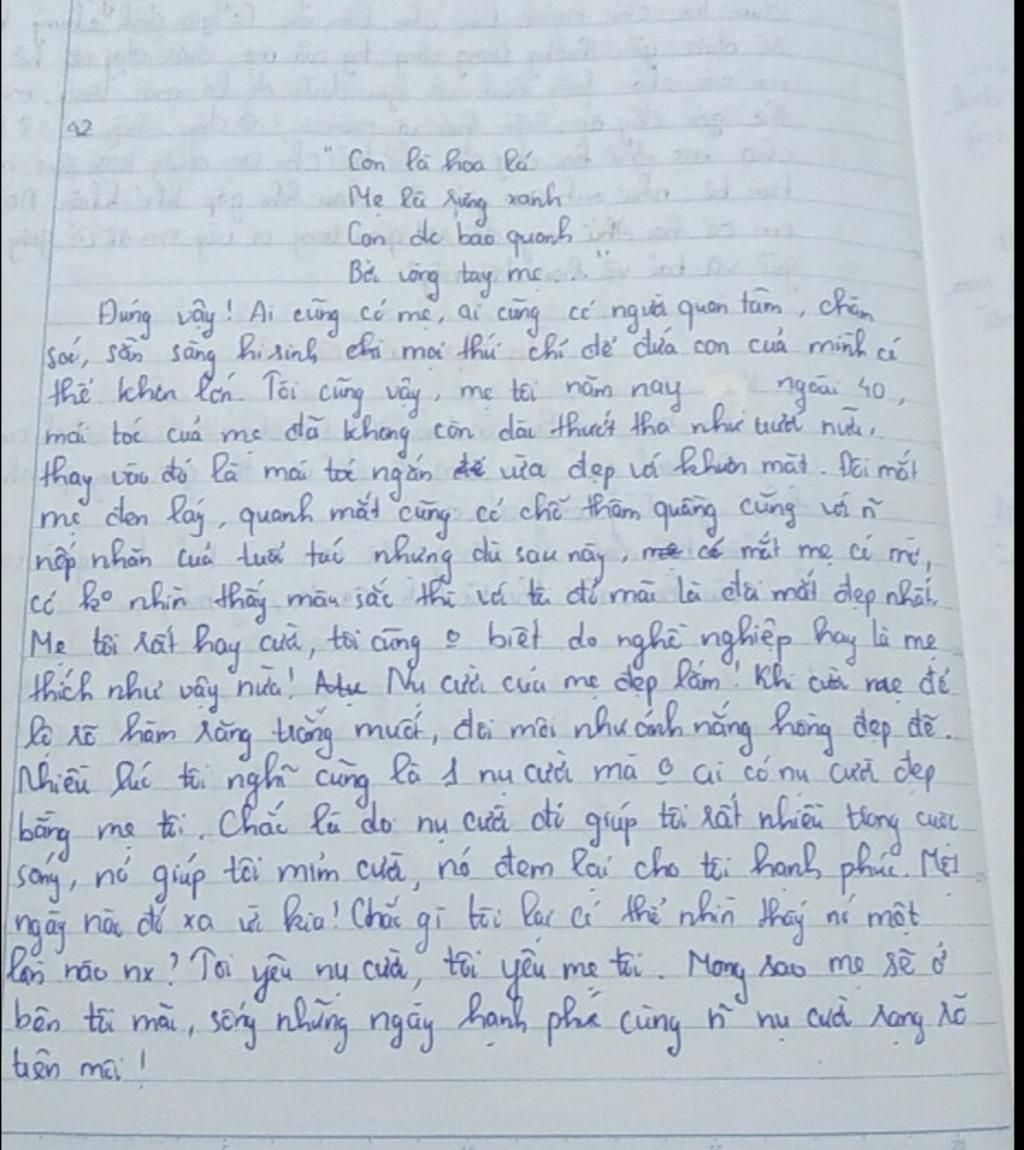 92
" Con là hoa lá
Mẹ là rừng xanh
Con đc bao quanh
Bởi vòng tay mẹ...."
Đúng vậy! Ai cũng có mẹ, ai cũng có người quan tâm, chăm
soć, sẵn sàng hi sinh cho mọi thứ chỉ để đứa con của mình có
thể khôn lớn. Tôi cũng vậy, mẹ tôi năm nay ngoài 40,
mái tóc của mẹ đã không còn dài thướt tha như trước nữa,
thay vào đó là mái tóc ngắn vừa đẹp với khuôn mặt. Đôi mắt
mẹ đen láy, quanh mắt cũng có chỗ thâm quầng cùng với ñ
nếp nhăn của tuổi tác nhưng dù sau này, mắt mẹ có mờ,
có ko nhìn thấy màu sắc thì với tôi đó mãi là đôi mắt đẹp nhất.
Mẹ tôi rất hay cười, tôi cũng o biết do nghề nghiệp hay là mẹ
thích như vậy nữa! Nụ cười của mẹ đẹp lắm! Khi cười mẹ để
lộ rõ hàm răng trắng muốt, đôi môi như ánh nắng hồng đẹp đẽ.
Nhiều lúc tôi nghĩ cũng là 1 nụ cười mà o ai có nụ cười đẹp
bằng mẹ tôi. Chắc là do nụ cười đó giúp tôi rất nhiều trong cuộc
sống, nó giúp tôi mỉm cười, nó đem lại cho tôi hạnh phúc. Một
ngày nào đó xa vời kia! Chắc gì tôi lại có thể nhìn thấy nó một
lần nào nx? Tôi yêu nụ cười, tôi yêu mẹ tôi. Mong sao mẹ sẽ ở
bên tôi mãi, sống những ngày hạnh phúc cùng ñ nụ cười rạng rỡ
trên môi!